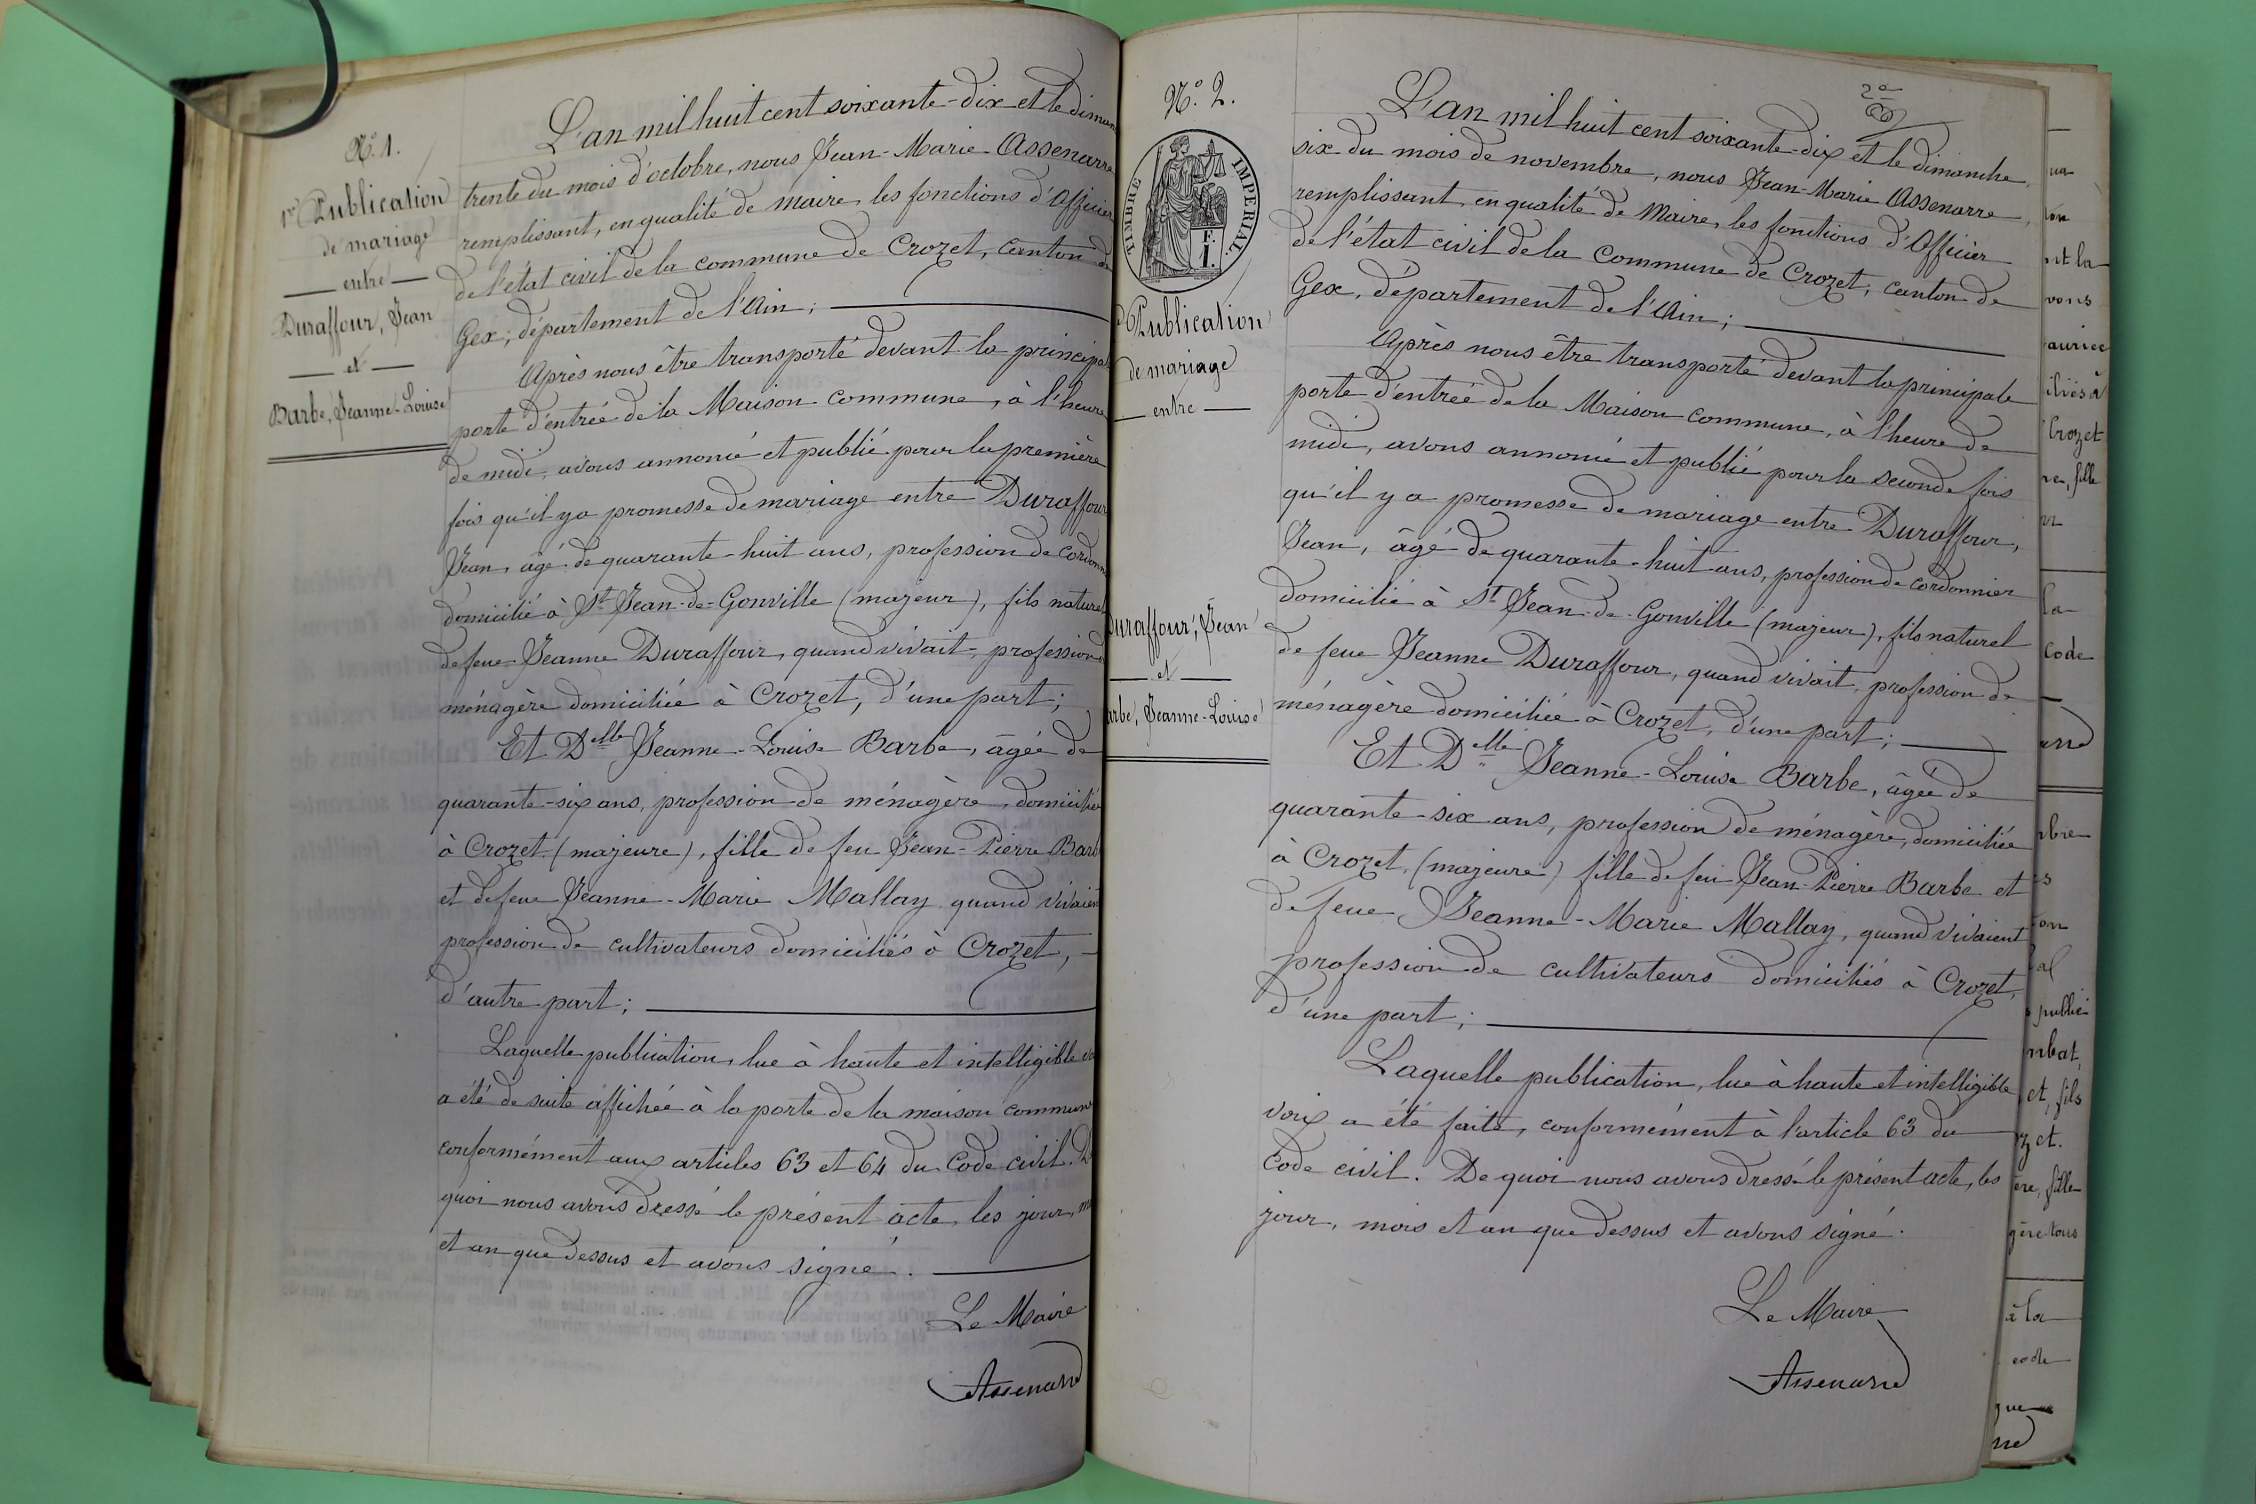 N.º 1.
1re Publication
de mariage
entre
Duraffour, Jean
et
Barbe, Jeanne-Louise
L'an mil huit cent soixante-dix et le diman
trente du mois d'octobre, nous Jean-Marie Assenarre
remplissant, en qualité de Maire, les fonctions d'Officier
de l'état civil de la commune de Crozet, canton de
Gex, département de l'Ain;
Après nous être transporté devant la principal
porte d'entrée de la Maison commune, à l'heure
de midi, avons annoncé et publié pour la première
fois qu'il y a promesse de mariage entre Duraffour
Jean, âgé de quarante-huit ans, profession de cordonn
domicilié à St Jean-de-Gonville (majeur), fils naturel
de feue Jeanne Duraffour, quand vivait, profession d
ménagère domiciliée à Crozet, d'une part;
Et Delle Jeanne-Louise Barbe, âgée de
quarante-six ans, profession de ménagère, domiciliée
à Crozet (majeure), fille de feu Jean-Pierre Barb
et de feue Jeanne-Marie Mallay quand vivaient
profession de cultivateurs domiciliés à Crozet,
d'autre part;
Laquelle publication, lue à haute et intelligible vo
a été de suite affichée à la porte de la maison commune
conformément aux articles 63 et 64 du Code civil. D
quoi nous avons dressé le présent acte, les jour, m
et an que dessus et avons signé.
Le Maire
Assenarre
N.º 2.
TIMBRE IMPERIAL.
F.
1.
e Publication
de mariage
entre
Duraffour, Jean
et
arbe, Jeanne-Louise
2e
L'an mil huit cent soixante-dix et le dimanche
six du mois de novembre, nous Jean-Marie Assenarre,
remplissant, en qualité de Maire, les fonctions d'Officier
de l'état civil de la Commune de Crozet, canton de
Gex, département de l'Ain;
Après nous être transporté devant la principale
porte d'entrée de la Maison commune, à l'heure de
midi, avons annoncé et publié pour la seconde fois
qu'il y a promesse de mariage entre Duraffour,
Jean, âgé de quarante-huit ans, profession de cordonnier
domicilié à St Jean-de-Gonville (majeur), fils naturel
de feue Jeanne Duraffour, quand vivait, profession de
ménagère domiciliée à Crozet, d'une part;
Et Delle Jeanne-Louise Barbe, âgée de
quarante-six ans, profession de ménagère, domiciliée
à Crozet, (majeure) fille de feu Jean-Pierre Barbe et
de feue Jeanne-Marie Mallay, quand vivaient
profession de cultivateurs domiciliés à Crozet,
d'une part;
Laquelle publication, lue à haute et intelligible
voix a été faite, conformément à l'article 63 du
Code civil. De quoi nous avons dressé le présent acte, les
jour, mois et an que dessus et avons signé.
Le Maire
Assenarre
nt la
vons
aurice
iliés à
Crozet
re, fille
la
code
bre
on
al
publié
mbat,
et, fils
zet.
ère, fille
gère tous
à la
code